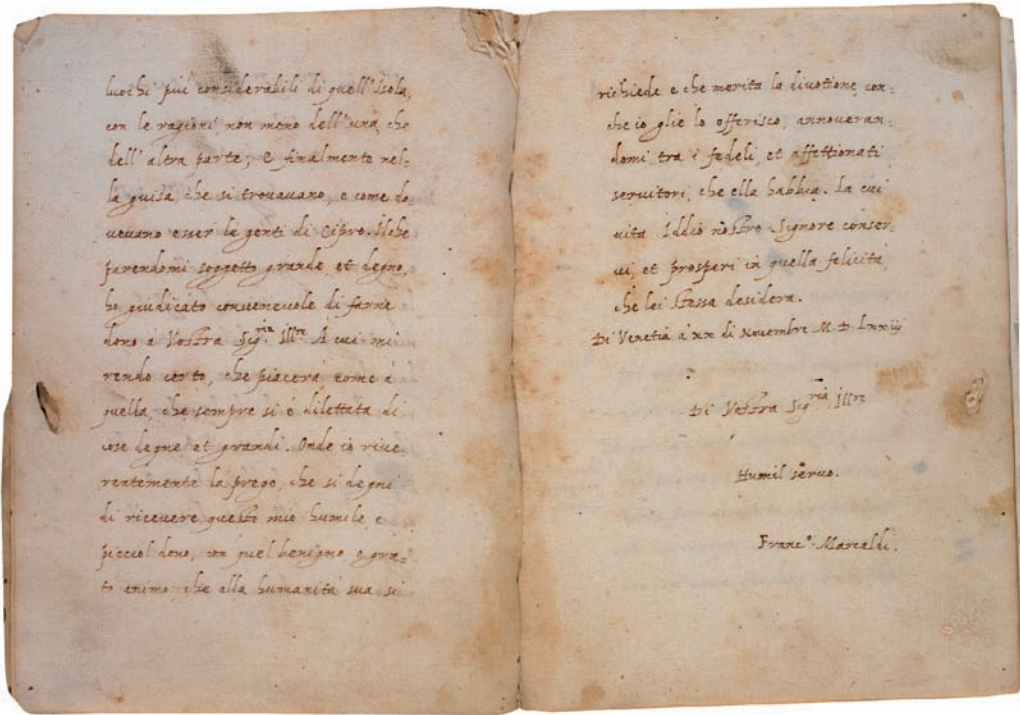 luochi più considerabili di quell'Isola,
con le ragioni non meno dell'una, che
dell'altra parte; e finalmente nel-
la guisa, che si trouauano, e come do-
ueuano esser le genti di Cipro. Ilche
parendomi soggetto grande, et degno,
ho giudicato conueneuole di farne
dono a Vostra Sig.ria Ill.re A cui mi
rendo certo, che piacerà, come a
quella, che sempre si è dilettata di
cose degne et grandi. Onde io riue
rentemente la prego, che si degni
di riceuere questo mio humile, e
picciol dono, con quel benigno e gra-
to animo che alla humanità sua si
richiede e che merita la diuotione, con-
che io glie lo offerisco, annoueran-
domi tra i fedeli, et affettionati
seruitori, che ella habbia. La cui
uita Iddio nostro Signore conser-
ui, et prosperi in quella felicità
che lei stessa desidera.
Di Venetia a xx di Nouembre M D Lxxiij
Di Vostra Sig.ria Ill.re
Humil seruo.
Franc.º Marcaldi.